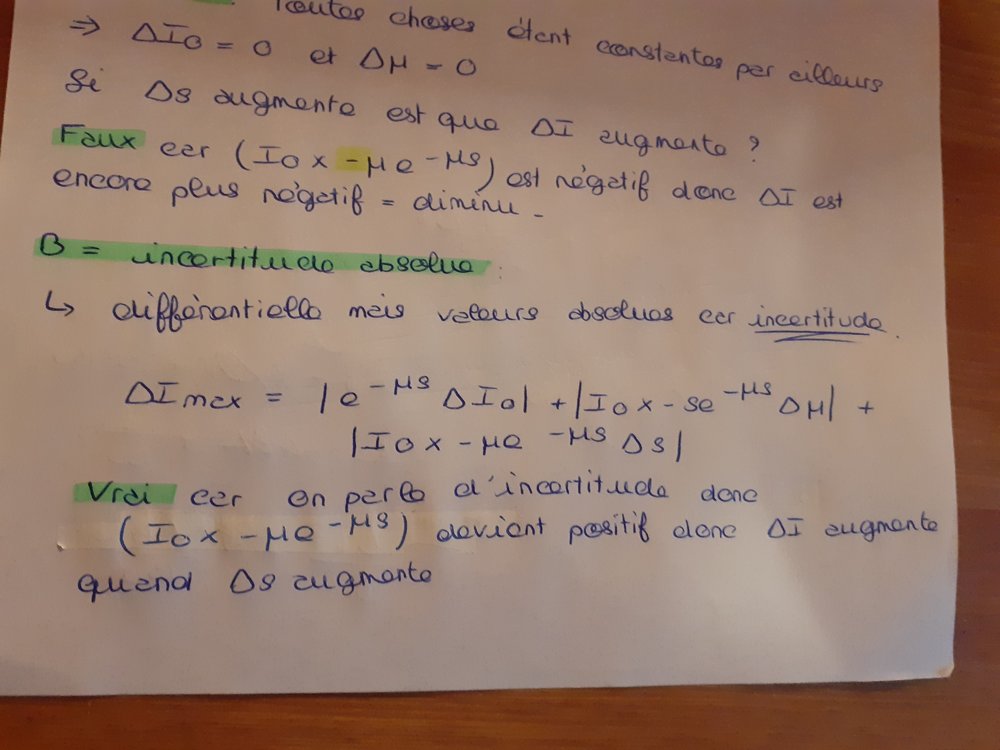 Toutes choses étant constantes par ailleurs
⇒ ΔI0 = 0 et Δμ = 0
Si Δs augmente est que ΔI augmente ?
Faux car (I0 x -μe^-μs) est négatif donc ΔI est
encore plus négatif = diminu -
B = incertitude absolue :
↳ différentielle mais valeurs absolues car incertitude.
ΔImax = |e^-μs ΔI0| + |I0 x - se^-μs Δμ| +
|I0 x - μe^-μs Δs|
Vrai car on parle d'incertitude donc
(I0 x - μe^-μs) devient positif donc ΔI augmente
quand Δs augmente